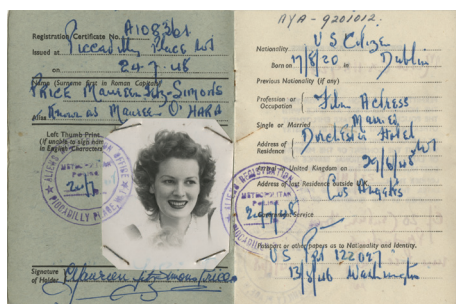 Registration Certificate No. A108361
Issued at Piccadilly Place W1
on 24.7.48
Name (Surname first in Roman Capitals)
PRICE Maureen Fitz-Simons
Alias Known as Maureen O'HARA
Left Thumb Print
(if unable to sign name
in English Characters)
ALIENS REGISTRATION OFFICE
METROPOLITAN
POLICE
PICCADILLY PLACE, W.1.
Signature
of Holder
Maureen Fitzsimons Price
Nationality US Citizen
Born on 17/8/20 in Dublin
Previous Nationality (if any)
Profession or
Occupation Film Actress
Single or Married Married
Address of
Residence Dorchester Hotel
Arrival in United Kingdom on 29/6/48
Address of last Residence outside
Los Angeles
ALIENS REGISTRATION
METROPOLITAN
Service
Passport or other papers as to Nationality and Identity.
US PPt 122027
13/8/46 Washington